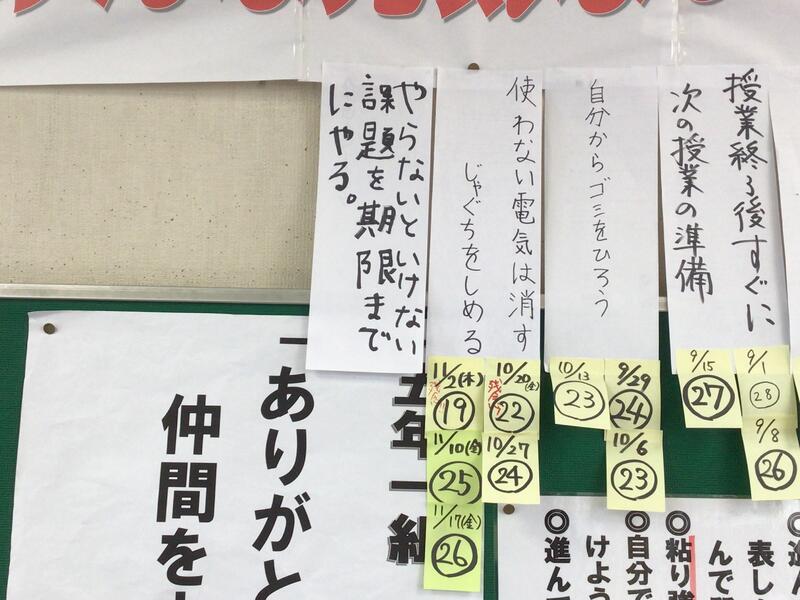 授業終了後すぐに
次の授業の準備
自分からゴミをひろう
使わない電気は消す
じゃぐちをしめる
やらないといけない
課題を期限まで
にやる。
9/1
28
9/8
26
9/15
27
9/29
24
10/6
23
10/13
23
10/20(金)
22
10/27
24
11/2(木)
19
11/10(金)
25
11/17(金)
26
五年一組
「ありがと
仲間を
表し
んで
◎粘り強
◎自分で
けよう
◎進んで